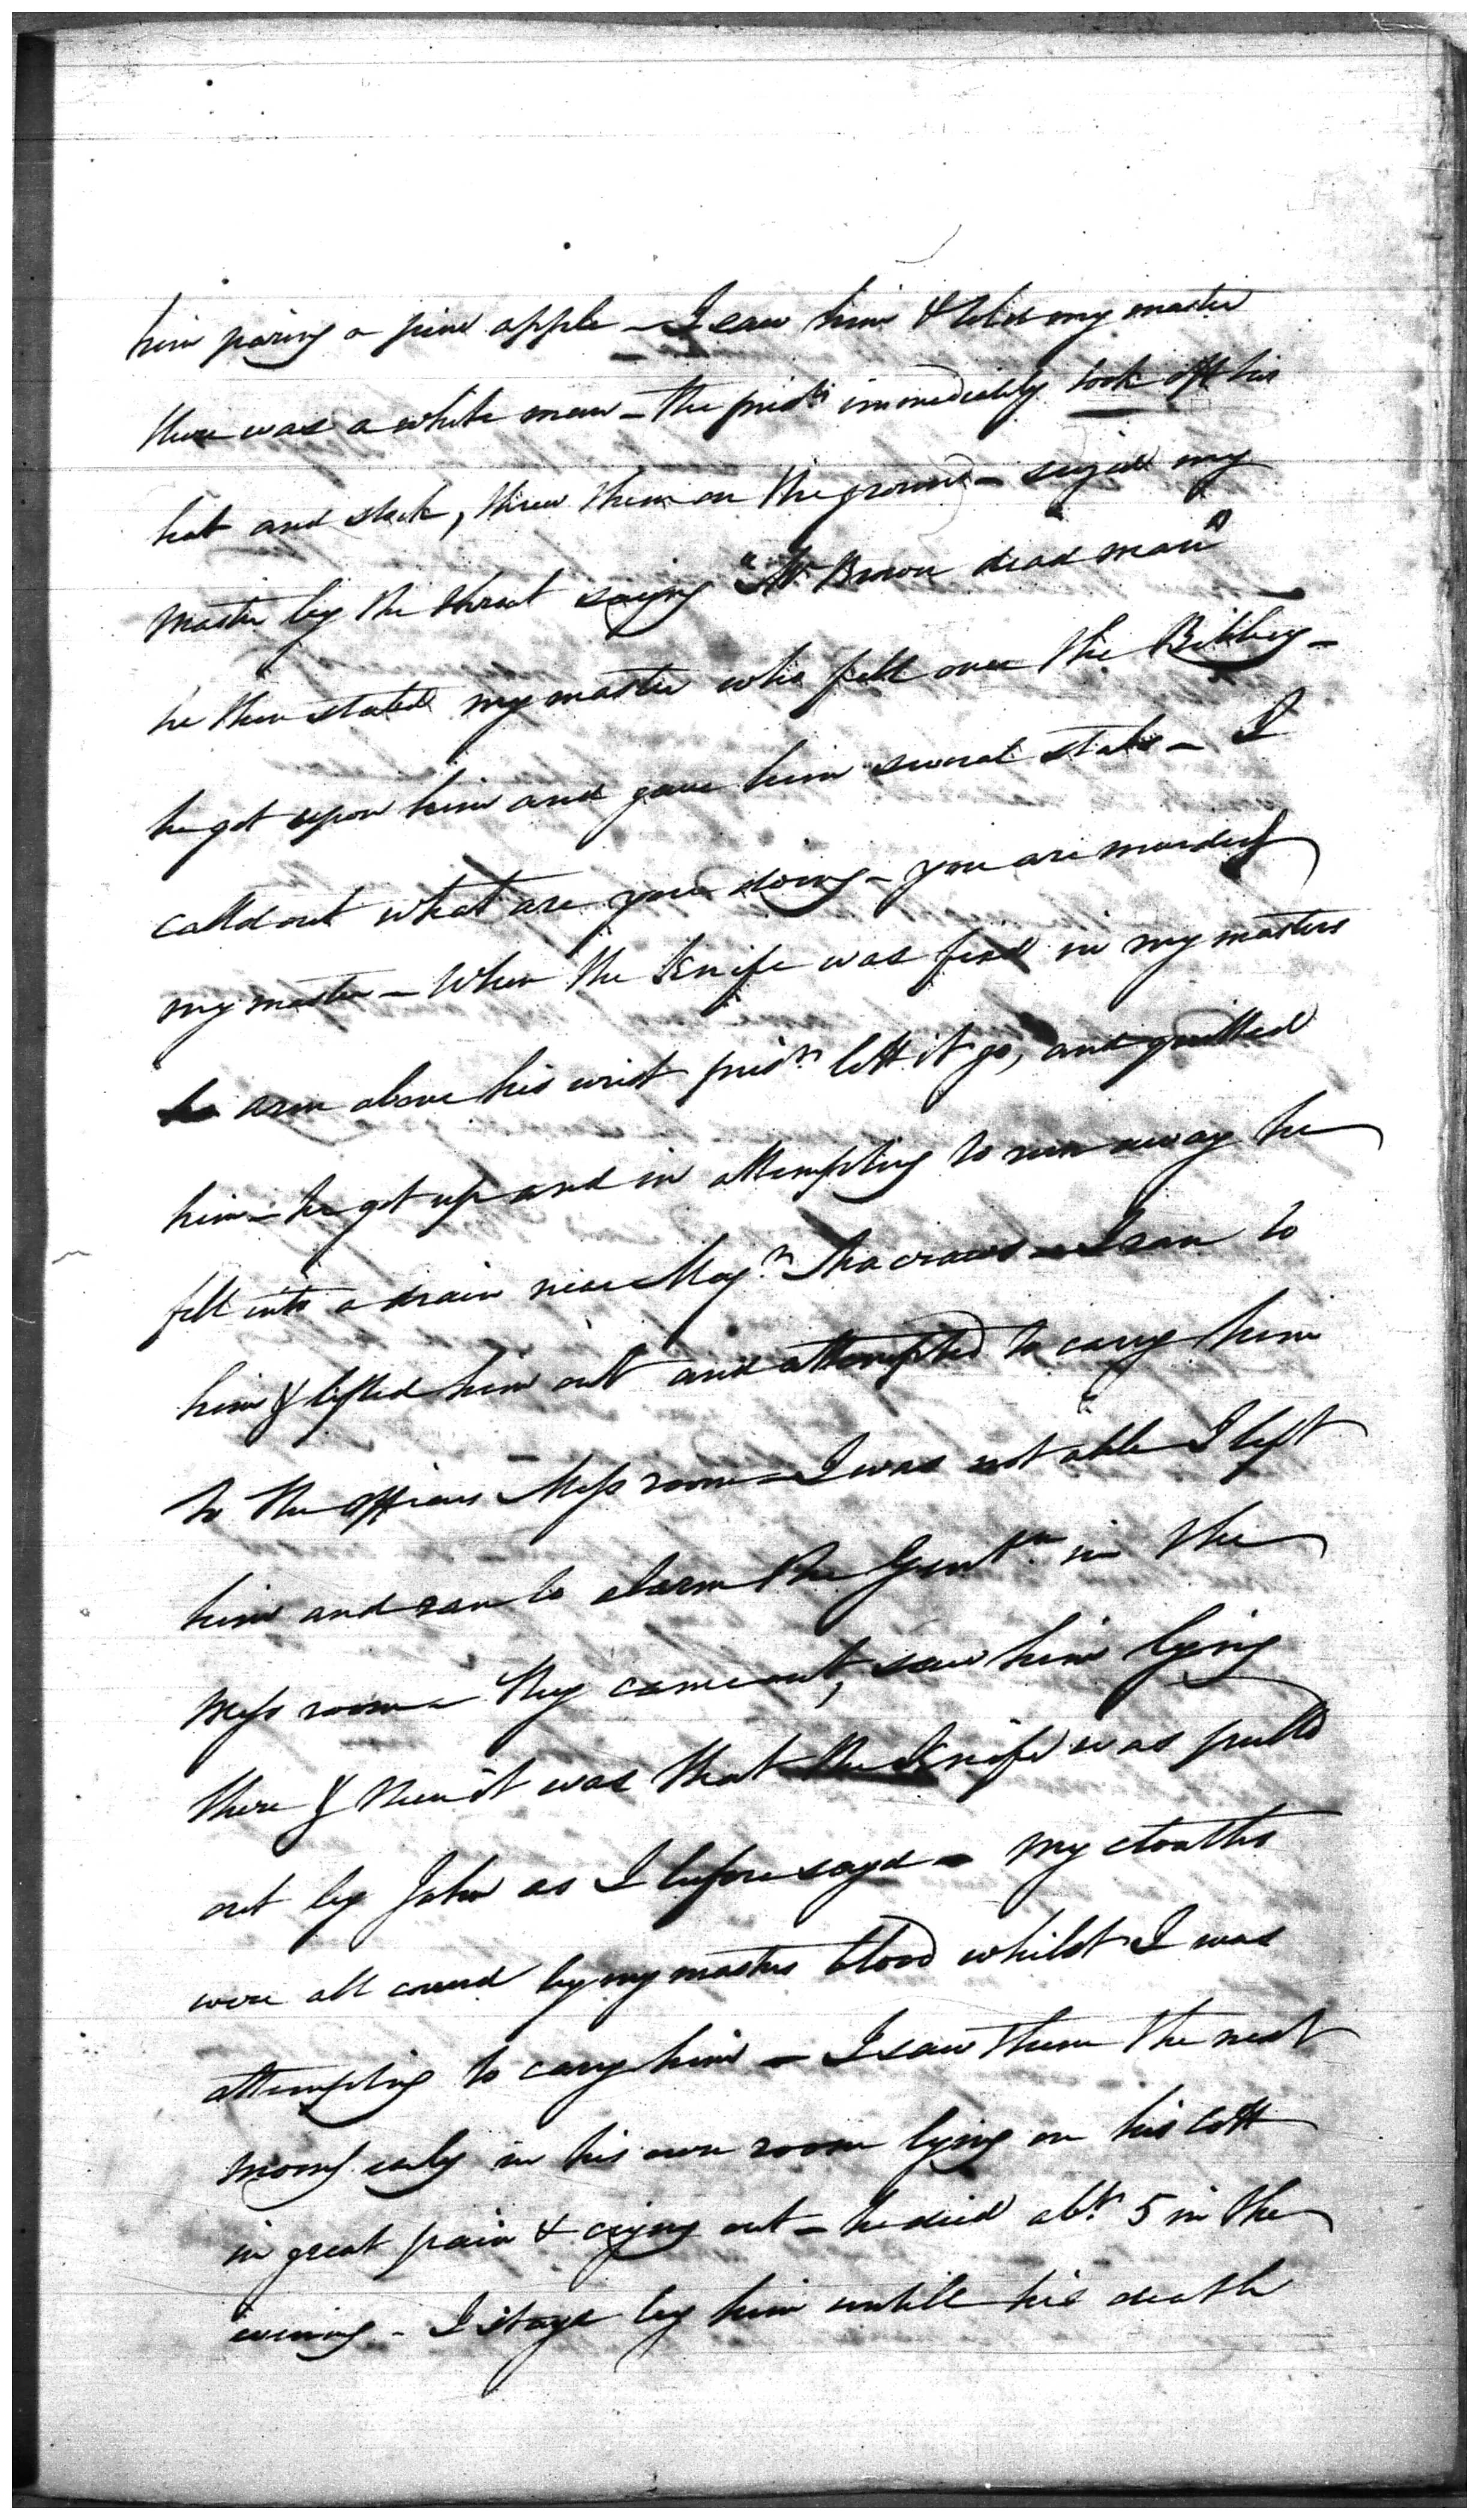 him paring a pine apple – I saw him & told my master
there was a white man – the prisr. immediately took off his
hat and stick, threw them on the ground – seized my
master by the throat saying "Mr Brown dead man"
he then stabd my master who fell over the
he got upon him and gave him several stabs – I
calld out what are you doing – you are murderg
my master – When the Knife was fixd in my masters
arm above his wrist prisr. lett it go, and quitted
him – he got up and in attempting to run away he
fell into a drain near Majr. – I ran to
him & lifted him out and attempted to carry him
to the officers Mess room – I was not able I left
him and ran to alarm the Gentn. in the
Mess room – they came out, saw him lying
there & then it was that the Knife was pulld
out by John as I before sayd – my cloaths
were all coverd by my masters blood whilst I was
attempting to carry him – I saw them the next
morng. early in his own room lying on his Cott
in great pain & crying out – he died abt. 5 in the
evening – I stayd by him untill his death